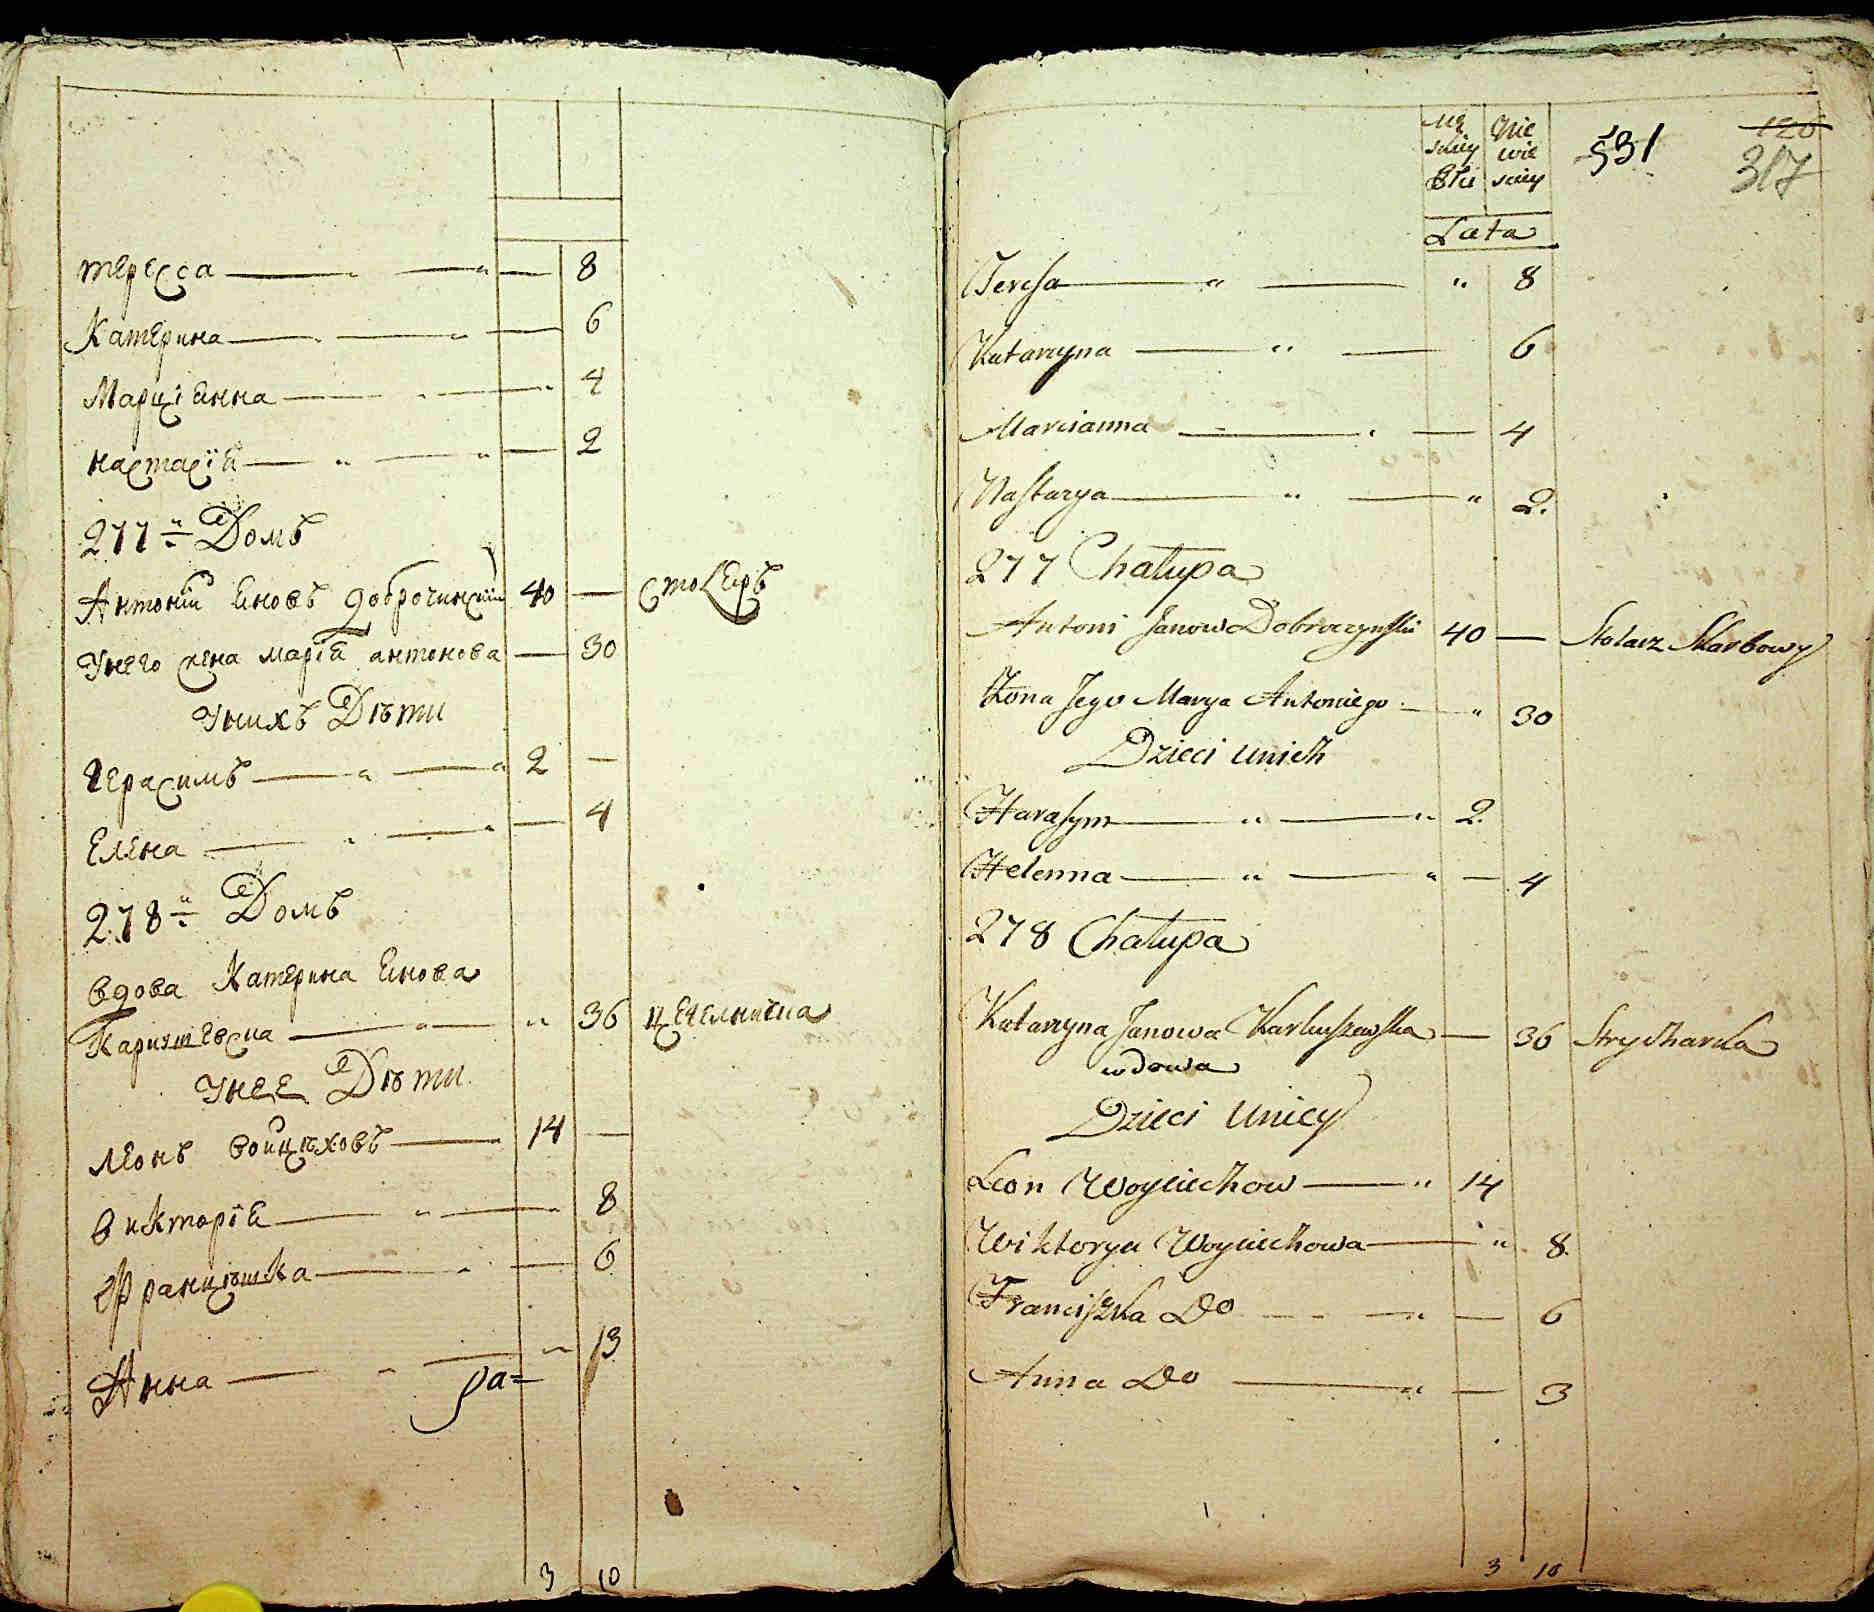 тересса — — — 8
Катерина — — — 6
Марціянна — — — 4
настасія — — — 2
277й Домъ
Антоній яновъ доброчинскій 40 — столяръ
Унего жена марія антонова — 30
Унихъ Дѣти
Герасимъ — — 2 —
Елена — — — 4
278й Домъ
вдова Катерина янова
— „ 36 цегелничка
Унее Дѣти
леонъ войцѣховъ — 14 —
викторія — — 8
Францѣшка — — 6
Анна — „ 13
ра=
3 10
531
126
317
Mę skiey Płci
Nie wie sciey
Lata
Teressa — „ — „ 8
Katarzyna — „ — 6
Marcianna — — 4
Nastazya — „ — „ 2.
277 Chałupa
Antoni Janow Dobroczynski 40 — Stolarz Skarbowy
Żona Jego Marya Antoniego — „ 30
Dzieci unich
Harasym — „ — „ 2.
Helenna — „ — „ — 4
278 Chałupa
Katarzyna Janowa Karluszewska — 36 Strycharka
wdowa
Dzieci Unicy
Leon Woyciechow — „ 14
Wiktorya Woyciechowa — „ 8.
Franciszka Do — — „ — 6
Anna Do — „ — 3
3 10